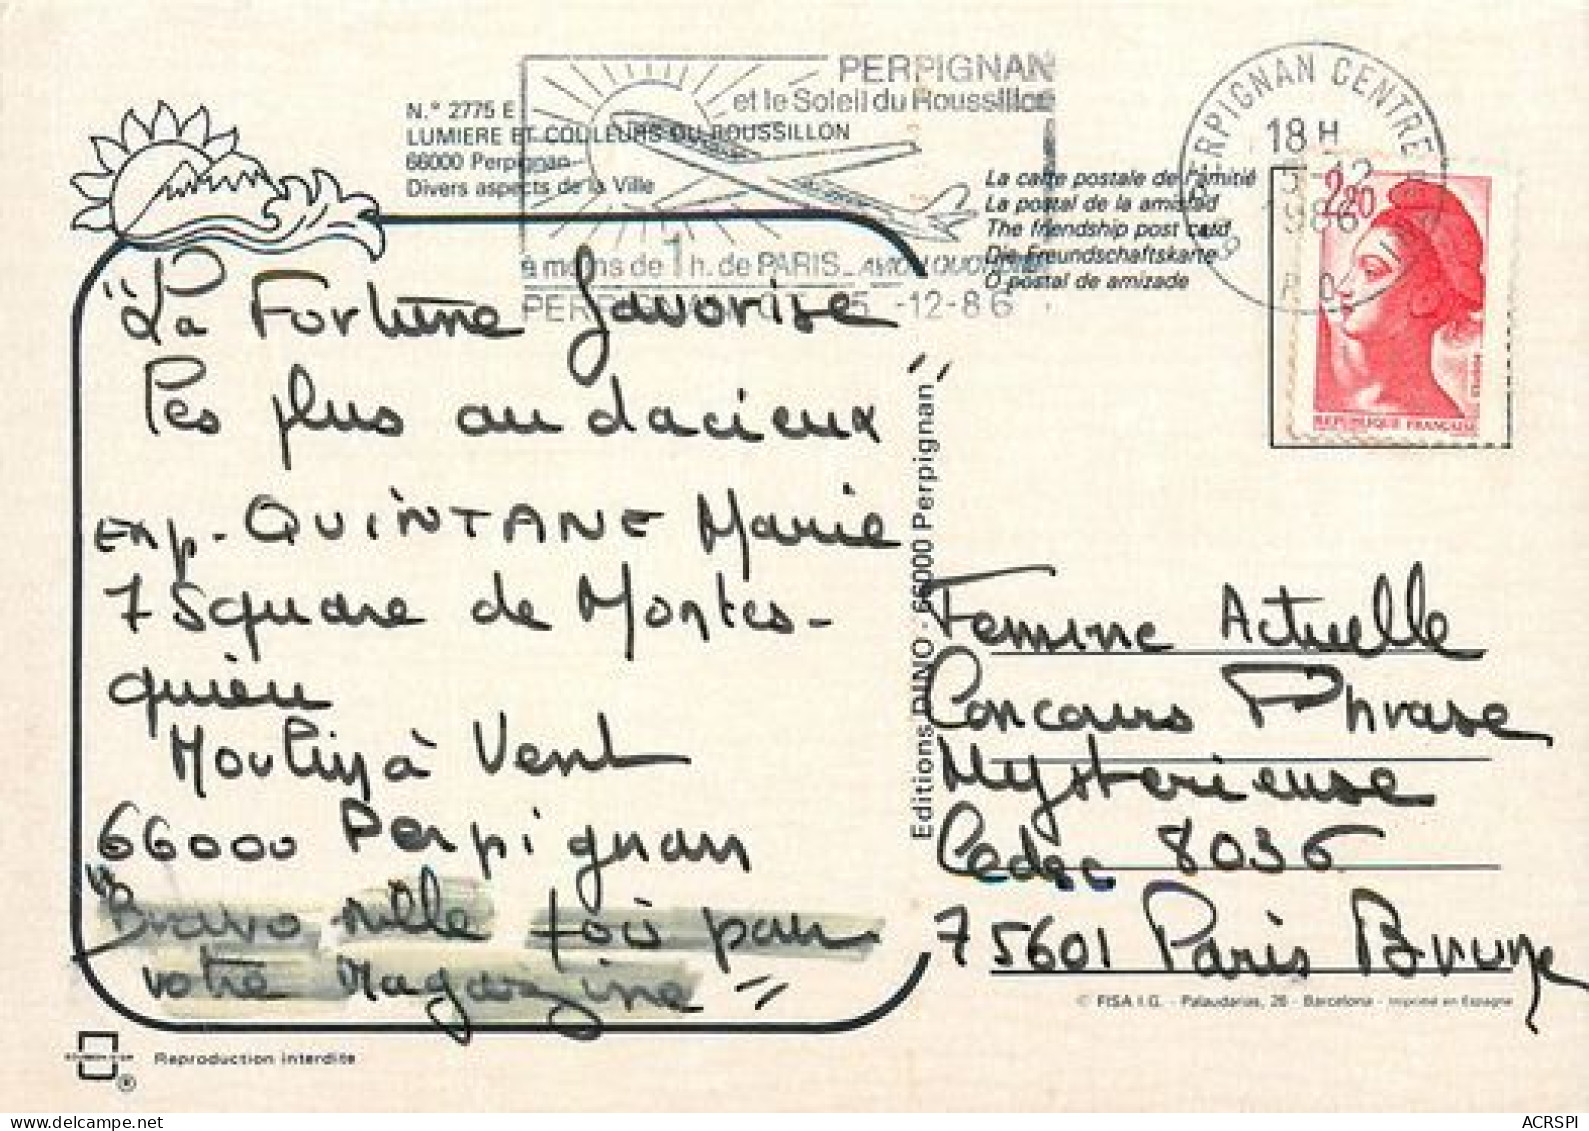 PERPIGNAN
et le Soleil du Roussillon
à moins de 1 h. de PARIS_AVION QUOTIDIEN
5 -12-86
PERPIGNAN CENTRE
18 H
5-12
1986
N.° 2775 E
LUMIERE ET COULEURS DU ROUSSILLON
66000 Perpignan
Divers aspects de la Ville
La carte postale de l'amitié
La postal de la amistad
The friendship post card
Die Freundschaftskarte
O postal de amizade
2,20
REPUBLIQUE FRANÇAISE
"La Fortune favorise
les plus audacieux"
Exp. QUINTANE Marie
7 Square de Montes-
quieu
Moulin à Vent
66000 Perpignan
"Bravo mille fois pour
votre Magazine"
Editions DINO - 66000 Perpignan
Femme Actuelle
Concours Phrase
Mysterieuse
Cedex 8036
75601 Paris Brune
© FISA I.G. - Palaudarias, 26 - Barcelona - Imprimé en Espagne
Reproduction interdite
®
ACRSPI